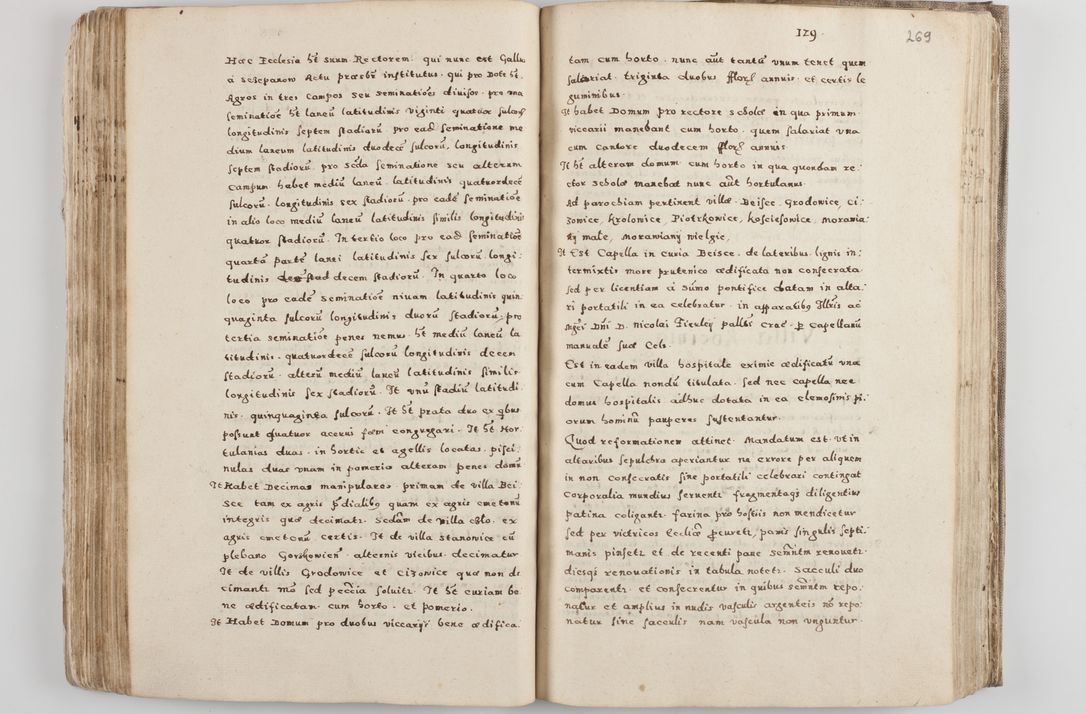 Hæc Ecclesia ht suum Rectorem qui nunc est Gallus
a Sczepanow Actu præsbr institutus. qui pro Dote ht.
Agros in tres campos seu seminatiões diuisos. pro vna
seminatiõe ht laneū latitudinis viginti quatuor sulcorū
longitudinis septem stadiorū. pro ead seminatione me
dium laneum latitudinis duodecē sulcorū, longitudinis
septem stadiorū. pro scda seminatione seu alterum
campum habet mediū laneū. latitudinis quatuordecē
sulcorū. longitudinis sex stadiorū. pro eadē seminatiõe
in alio loco mediū laneū latitudinis similis longitudinis
quatuor stadiorū. In tertio loco pro ead seminatiõe
quartā partē lanei latitudinis sex sulcorū. longi:
tudinis decem stadiorū. In quarto loco
loco pro eadē seminatiõe niuam latitudinis quin
quaginta sulcorū longitudinis duorū stadiorū. pro
tertia seminatiõe penes nemus. ht mediū laneū la
titudinis. quatuordecē sulcorū longitudinis decem
stadiorū. alterū mediū laneū latitudinis similis
longitudinis sex stadiorū. It vnū stadiū latitudi
nis. quinquaginta sulcorū. It ht prata duo ex qbus
possunt quatuor acerui foeni congregari. It ht Hor
tulanias duas. in hortis et agellis locatas. pisci:
nulas duas vnam in pomerio alteram penes domū
It Habet Decimas manipulares. primam de villa Bei
sce tam ex agris pdialibq quam ex agris cmetonū
integris quæ decimatr. Secdam de villa eblo. ex
agris cmetonū certis. It de villa Stanowice cū
plebano Gorzkowien. alternis vicibus decimatur
It de villis Grodowice et Cizowice quæ non de
cimantr mo sed peccia soluitr. It ht curiam be
ne ædificatam cum horto. et pomerio.
It Habet Domum pro duobus viccarijs bene ædifica:
129.
269
tam cum horto. nunc aūt tantū vnum tenet quem
salariat. triginta duobus fflor annuis. et certis le
guminibus.
It habet Domum pro rectore scholæ in qua primum
viccarii manebant cum horto. quem salariat vna
cum cantore duodecem fflor annuis.
It ht alteram domum cum horto in qua quondam re:
ctor scholæ manebat nunc aūt hortulanus.
Ad parochiam pertinent villæ. Beisce. Grodowice, Ci:
zowice, Krolowice, Piotrkowice, Koscielowice, Morawia:
ny male, Morawiany wielgie,
It Est Capella in curia Beisce. de lateribus. lignis in:
termixtis more prutenico ædificata non consecrata
sed per licentiam a Sūmo pontifice datam in alta:
ri portatili in ea celebratur. in apparatibq Illris ac
Mgci Dni D. Nicolai Firley pallts Crac. p capellanū
manualē suæ Cels.
Est in eadem villa hospitale eximie ædificatū vna
cum Capella nondū titulata. sed nec capella nec
domus hospitalis adhuc dotata in ea elemosinis pi:
orum hominū pauperes sustentantur.
Quod reformationem attinet. Mandatum est. vt in
altaribus sepulchra aperiantur ne errore per aliquem
in non consecratis sine portatili celebrari contingat
Corporalia mundius seruentr fragmentaq diligentius
patina coligantr. farina pro hostiis non mendicetur
sed per victricos Eccliæ pcuretr, panis singulis septi:
manis pinsetr et de recenti pane Scrmtm renouetr.
diesq renouationis in tabula notetr. Sacculi duo
comparentr. et consecrentur in quibus scrmtm repo:
natur et amplius in nudis vasculis argenteis no repo:
natur sine sacculis nam vascula non vnguntur.